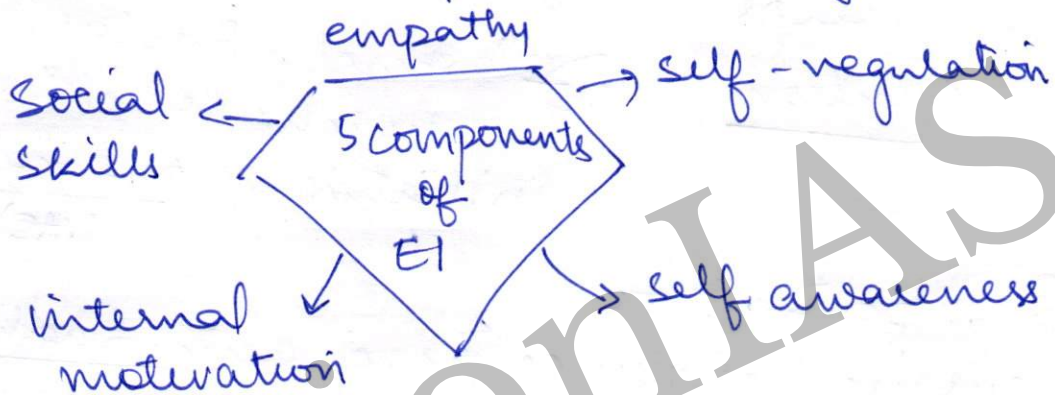 empathy
social
skills
self-regulation
5 components
of
EI
internal
motivation
self awareness
onIAS